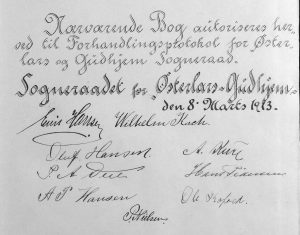 Nærværende Bog autoriseres her-
ved til Forhandlingsprotokol for Øster-
lars og Gudhjem Sogneraad.
Sogneraadet for Østerlars-Gudhjem
den 8' Marts 1913.
Hansen Wilhelm Koch
Oluf Hansen. A.
P. A.
A P Hansen Ole
P. Nielsen